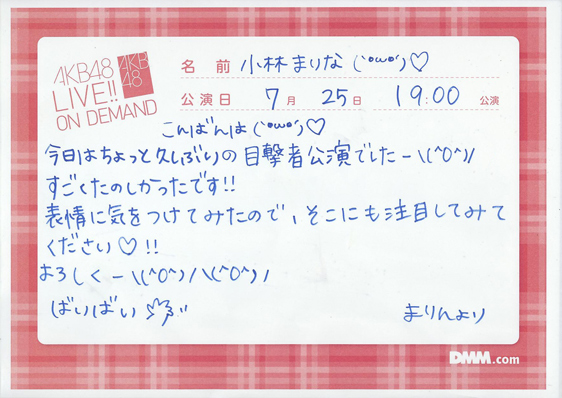 AKB48
LIVE!!
ON DEMAND
AKB
48
名前 小林まりな (`・ω・´)♡
公演日 7月 25日 19:00 公演
こんばんは (`・ω・´)♡
今日はちょっと久しぶりの目撃者公演でしたー\(^O^)/
すごくたのしかったです!!
表情に気をつけてみたので、そこにも注目してみて
ください♡!!
よろしくー\(^O^)/\(^O^)/
ばいばい
まりんより
DMM.com